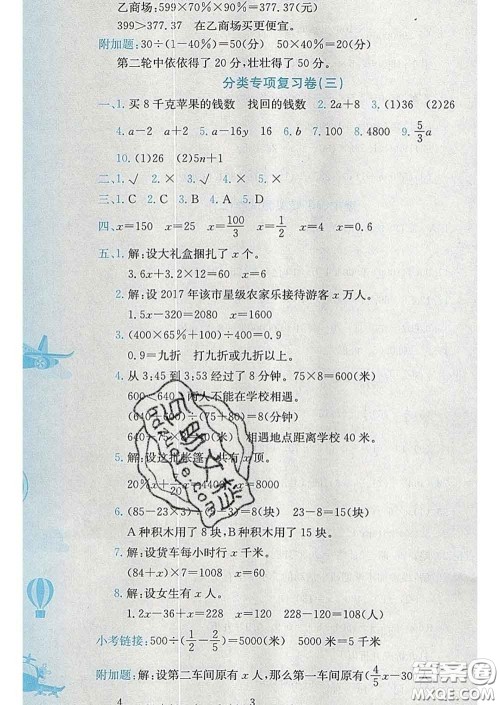 乙商场:599×70%×90%=377.37(元)
399>377.37 在乙商场买更便宜。
附加题:30÷(1-40%)=50(分) 50×40%=20(分)
第二轮中依依得了20分,壮壮得了50分。
分类专项复习卷(三)
一、1.买8千克苹果的钱数 找回的钱数 2.2a+8 3.(1)36 (2)26
4.a-2 a+2 5.a-16y 16 7.90 8.100 8.4800 9.5/3a
10.(1)26 (2)5n+1
二、1.√ 2.× 3.√ 4.× 5.×
三、1.C 2.D 3.B 4.A 5.D
四、x=150 x=25 x=100/3 x=1/2 x=4 x=0.6
五、1.解:设大礼盒捆扎了x个。
3.6x+3.2×12=60 x=6
2.解:设2017年该市星级农家乐接待游客x万人。
1.5x-320=2080 x=1600
3.(400×65%+100)÷400
=0.9=九折 打九折或九折以上。
4.从3:45到3:53经过了8分钟。75×8=600(米)
600<640 两人不能在学校相遇。
(640+600)÷(75+80)=8(分钟)
640-75×8=40(米) 相遇地点距离学校40米。
5.解:设这批帐篷共有x顶。
x=8000
6.(85-23×3)÷(5-3)=8(块) 23-8=15(块)
A种积木用了8块,B种积木用了15块。
7.解:设货车每小时行x千米。
(84+x)×7=1008 x=60
8.解:设女生有x人。
1.2x-36=228 x=220 228-220=8(人)
小考链接:500÷(1/2-2/5)=5000(米) 5000米=5千米
附加题:解:设第二车间原有x人,那么第一车间原有(4/5x-30
答案圈
MXQE.COM